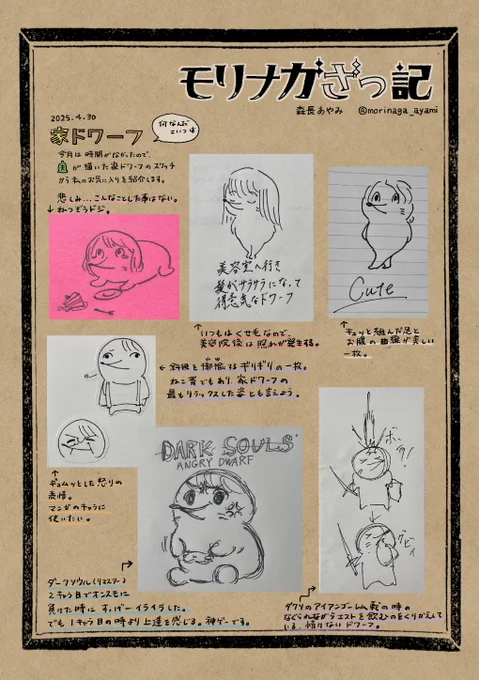 モリナガざっ記
森長あやみ @morinaga_ayami
2025.4.30
家ドワーフ
何なんだ
こいつは
今月は時間がなかったので、
が描いた家ドワーフのスケッチ
から私のお気に入りを紹介します。
悲しみ…こんなことした事はない。
↓ねつぞうドジ。
美容室へ行き
髪がサラサラになって
得意気なドワーフ
Cute
↑いつもはくせ毛なので、
美容院後は照れが発生する。
↑キュッと組んだ足と
お腹の曲線が美しい
一枚。
← 斜視と
はギリギリの一枚。
ねこ背でもあり、家ドワーフの
最もリラックスした姿とも言えよう。
↑
ギュムッとした怒りの
表情。
マンガのキャラに
使いたい。
DARK SOULS
ANGRY DWARF
ボッ
グビィ
ダークソウル(リマスター)
2キャラ目でオンスモに
負けた時にすっげーイライラした。
でも1キャラ目の時より上達を感じる。神ゲーです。
ダクソのアイアンゴーレム戦の時の
なぐられながらエストを飲むのをくりかえして
いる、情けないドワーフ。